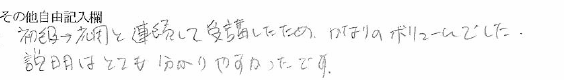 その他自由記入欄
初級→応用と連続して受講したため、かなりのボリュームでした。
説明はとても分かりやすかったです。